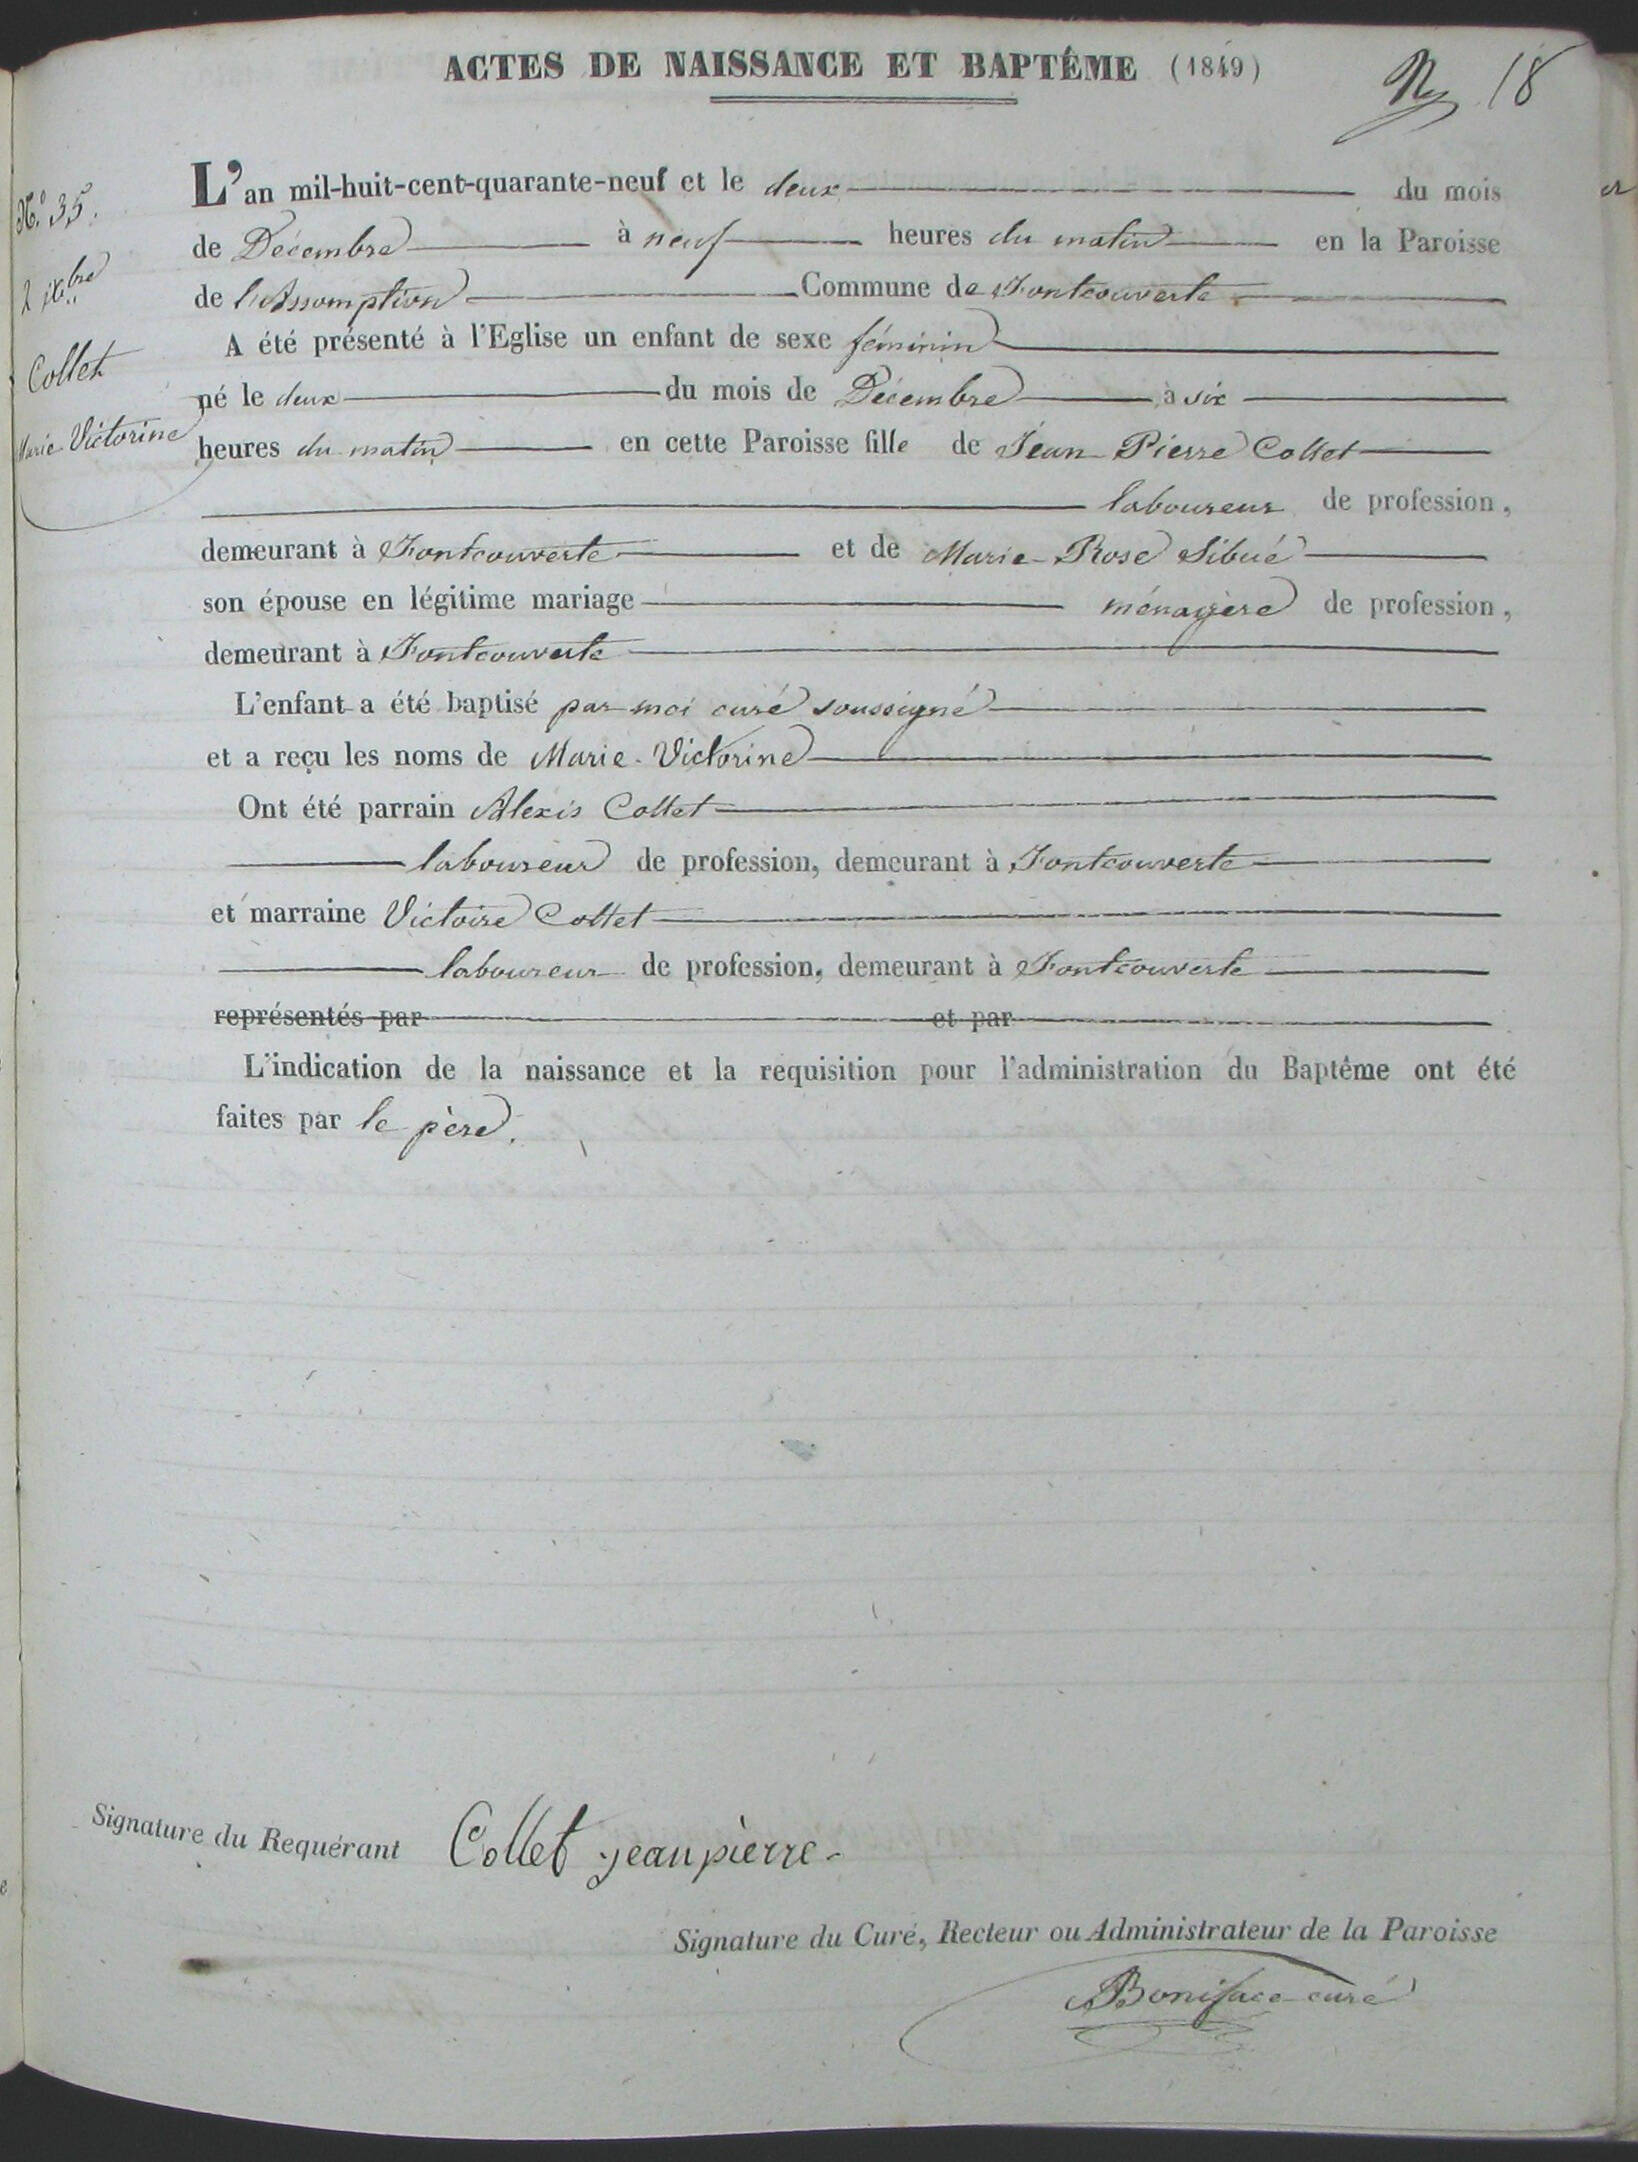 ACTES DE NAISSANCE ET BAPTÊME (1849)
18
N.º 35.
2 Xbre
Collet
Marie Victorine
L'an mil-huit-cent-quarante-neuf et le deux du mois
de Décembre à neuf heures du matin en la Paroisse
de l'Assomption Commune de Fontcouverte
A été présenté à l'Eglise un enfant de sexe féminin
né le deux du mois de Décembre à six
heures du matin en cette Paroisse fille de Jean Pierre Collet
laboureur de profession,
demeurant à Fontcouverte et de Marie-Rose Sibué
son épouse en légitime mariage ménagère de profession,
demeurant à Fontcouverte
L'enfant a été baptisé par moi curé soussigné
et a reçu les noms de Marie-Victorine
Ont été parrain Alexis Collet
laboureur de profession, demeurant à Fontcouverte
et marraine Victoire Collet
laboureur de profession, demeurant à Fontcouverte
représentés par et par
L'indication de la naissance et la requisition pour l'administration du Baptême ont été
faites par le père.
Signature du Requérant Collet jean pierre
Signature du Curé, Recteur ou Administrateur de la Paroisse
Boniface curé